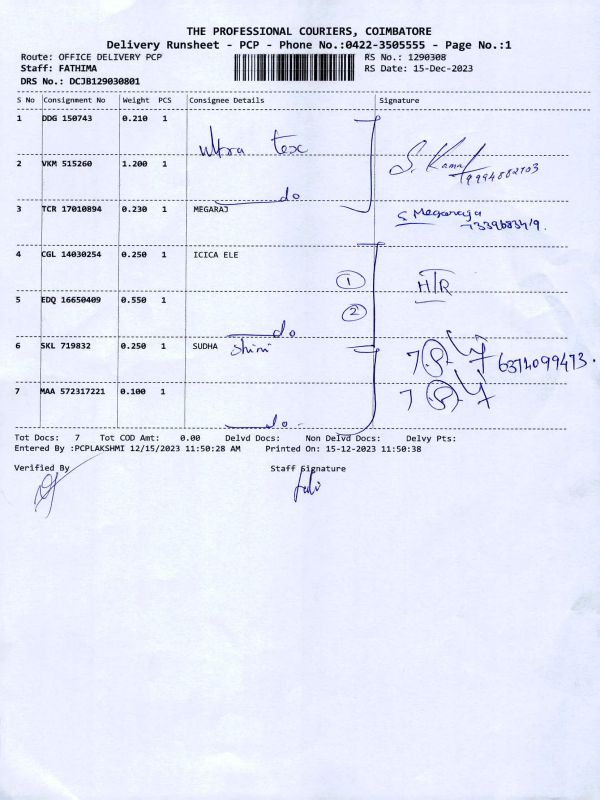 THE PROFESSIONAL COURIERS, COIMBATORE
Delivery Runsheet - PCP - Phone No.:0422-3505555 - Page No.:1
Route: OFFICE DELIVERY PCP RS No.: 1290308
Staff: FATHIMA RS Date: 15-Dec-2023
DRS No.: DCJB129030801
S No Consignment No Weight PCS Consignee Details Signature
1 DDG 150743 0.210 1
ultra tex
S. Kamal
9994882703
2 VKM 515260 1.200 1
do
3 TCR 17010894 0.230 1 MEGARAJ
S Megaraja
4 CGL 14030254 0.250 1 ICICA ELE
1 H/R
5 EDQ 16650409 0.550 1 2
do
6 SKL 719832 0.250 1 SUDHA Shini
6374099473.
7 MAA 572317221 0.100 1
do.
Tot Docs: 7 Tot COD Amt: 0.00 Delvd Docs: Non Delvd Docs: Delvy Pts:
Entered By :PCPLAKSHMI 12/15/2023 11:50:28 AM Printed On: 15-12-2023 11:50:38
Verified By Staff Signature